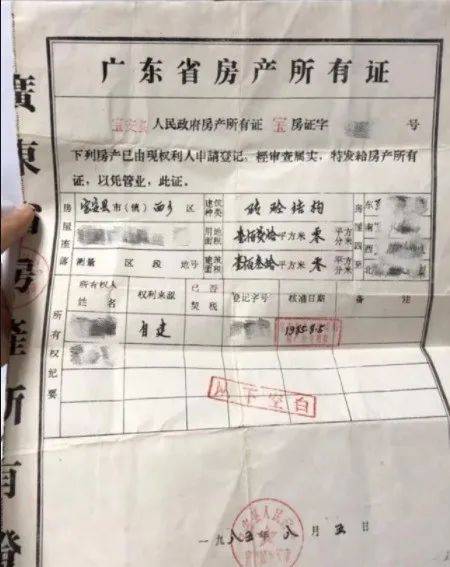 广东省房产所有证
宝安县人民政府房产所有证 宝 房证字 号
下列房产已由现权利人申請登记，經审查属实，特发給房产所有
証，以凭管业，此証。
房屋座落 宝安县市（镇）西乡 区 建筑种类 砖砼结构 房屋四至 东
用地面积 平方米 零 平方分米 南 西
测量 区 段 地号 建筑面积 壹佰叁拾平方米 零 平方分米 北
所有权纪要 所有权人姓名 权利来源 已否契税 登记字号 核准日期 备注
自建 1985.8.5
以下空白
一九八五年八月五日
廣東省房產所有證